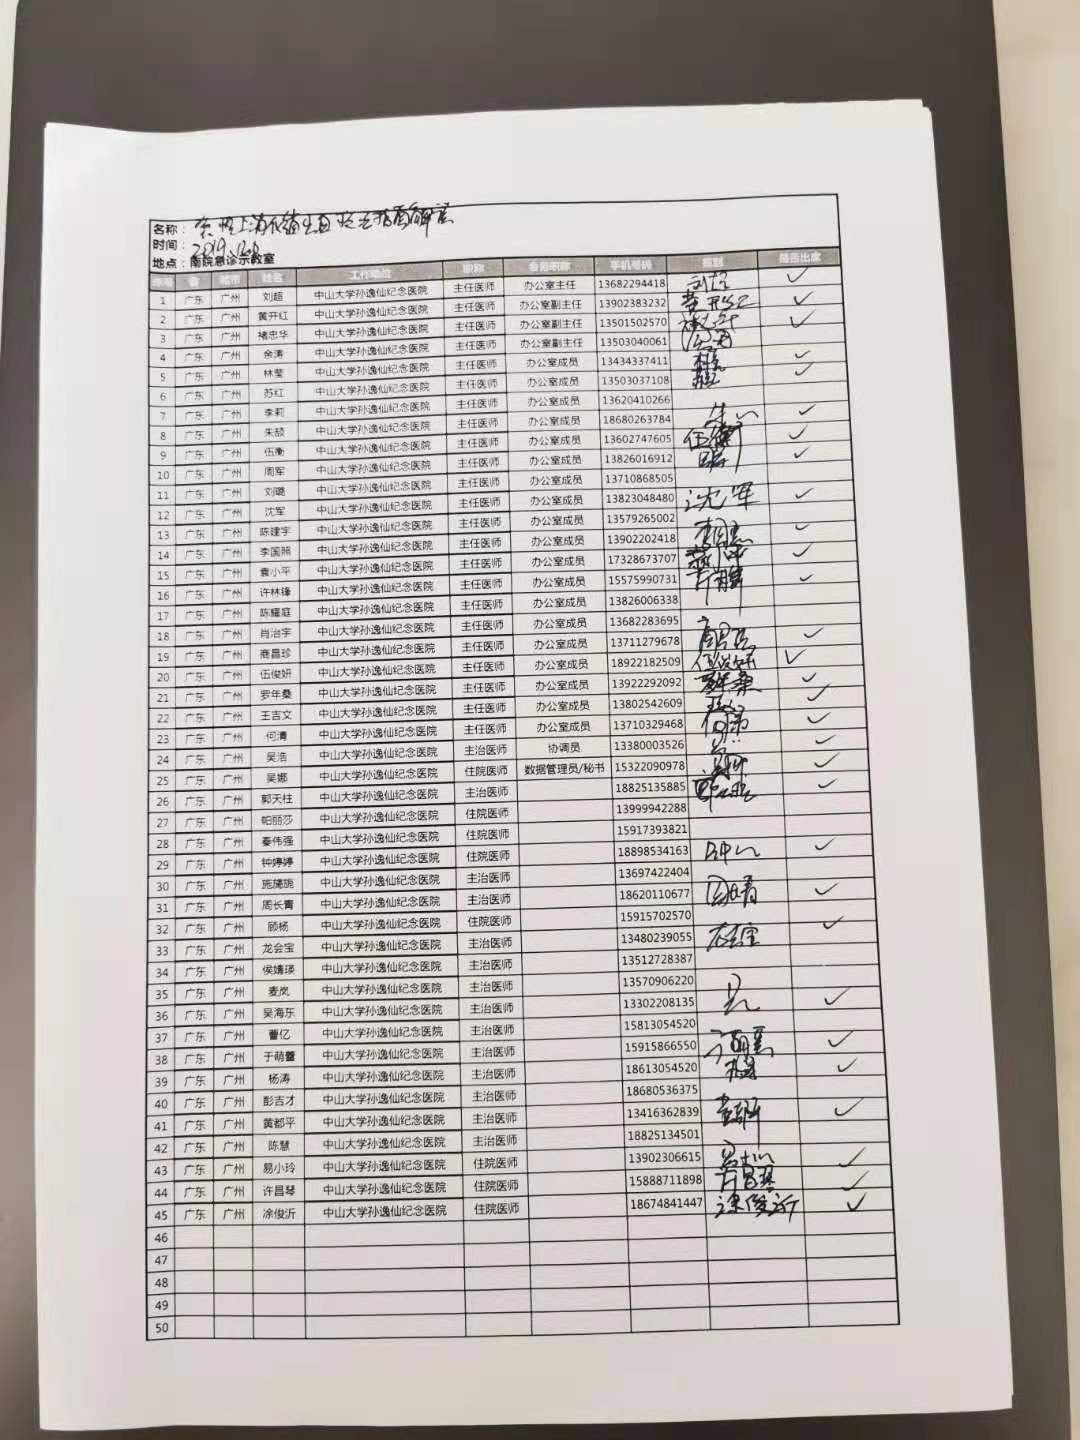 名称：
时间：2019.
地点：南院急诊示教室
序号 省 城市 姓名 工作单位 职称 手机号码 签到 是否出席
1 广东 广州 刘超 中山大学孙逸仙纪念医院 主任医师 办公室主任 13682294418 刘超 ✓
2 广东 广州 黄开红 中山大学孙逸仙纪念医院 主任医师 办公室副主任 13902383232 黄开红 ✓
3 广东 广州 褚忠华 中山大学孙逸仙纪念医院 主任医师 办公室副主任 13501502570 ✓
4 广东 广州 余涛 中山大学孙逸仙纪念医院 主任医师 办公室副主任 13503040061
5 广东 广州 林莹 中山大学孙逸仙纪念医院 主任医师 办公室成员 13434337411 ✓
6 广东 广州 苏红 中山大学孙逸仙纪念医院 主任医师 办公室成员 13503037108 ✓
7 广东 广州 李莉 中山大学孙逸仙纪念医院 主任医师 办公室成员 13620410266
8 广东 广州 朱颉 中山大学孙逸仙纪念医院 主任医师 办公室成员 18680263784 ✓
9 广东 广州 伍衡 中山大学孙逸仙纪念医院 主任医师 办公室成员 13602747605 伍衡 ✓
10 广东 广州 周军 中山大学孙逸仙纪念医院 主任医师 办公室成员 13826016912 ✓
11 广东 广州 刘璐 中山大学孙逸仙纪念医院 主任医师 办公室成员 13710868505
12 广东 广州 沈军 中山大学孙逸仙纪念医院 主任医师 办公室成员 13823048480 沈军 ✓
13 广东 广州 陈建宇 中山大学孙逸仙纪念医院 主任医师 办公室成员 13579265002
14 广东 广州 李国照 中山大学孙逸仙纪念医院 主任医师 办公室成员 13902202418 ✓
15 广东 广州 袁小平 中山大学孙逸仙纪念医院 主任医师 办公室成员 17328673707 ✓
16 广东 广州 许林锋 中山大学孙逸仙纪念医院 主任医师 办公室成员 15575990731 ✓
17 广东 广州 陈耀庭 中山大学孙逸仙纪念医院 主任医师 办公室成员 13826006338
18 广东 广州 肖治宇 中山大学孙逸仙纪念医院 主任医师 办公室成员 13682283695
19 广东 广州 商昌珍 中山大学孙逸仙纪念医院 主任医师 办公室成员 13711279678 商昌珍 ✓
20 广东 广州 伍俊妍 中山大学孙逸仙纪念医院 主任医师 办公室成员 18922182509 伍俊妍 ✓
21 广东 广州 罗年桑 中山大学孙逸仙纪念医院 主任医师 办公室成员 13922292092 罗年桑 ✓
22 广东 广州 王吉文 中山大学孙逸仙纪念医院 主任医师 办公室成员 13802542609 ✓
23 广东 广州 何清 中山大学孙逸仙纪念医院 主任医师 办公室成员 13710329468 ✓
24 广东 广州 吴浩 中山大学孙逸仙纪念医院 主治医师 协调员 13380003526 ✓
25 广东 广州 吴娜 中山大学孙逸仙纪念医院 住院医师 数据管理员/秘书 15322090978 ✓
26 广东 广州 郭天柱 中山大学孙逸仙纪念医院 主治医师 18825135885 ✓
27 广东 广州 帕丽莎 中山大学孙逸仙纪念医院 住院医师 13999942288
28 广东 广州 秦伟强 中山大学孙逸仙纪念医院 住院医师 15917393821
29 广东 广州 钟婷婷 中山大学孙逸仙纪念医院 住院医师 18898534163 ✓
30 广东 广州 中山大学孙逸仙纪念医院 主治医师 13697422404
31 广东 广州 周长青 中山大学孙逸仙纪念医院 主治医师 18620110677 ✓
32 广东 广州 顾杨 中山大学孙逸仙纪念医院 住院医师 15915702570
33 广东 广州 龙会宝 中山大学孙逸仙纪念医院 主治医师 13480239055 龙会宝 ✓
34 广东 广州 侯婧瑛 中山大学孙逸仙纪念医院 主治医师 13512728387
35 广东 广州 麦岚 中山大学孙逸仙纪念医院 主治医师 13570906220
36 广东 广州 吴海东 中山大学孙逸仙纪念医院 主治医师 13302208135 ✓
37 广东 广州 曹亿 中山大学孙逸仙纪念医院 主治医师 15813054520
38 广东 广州 于萌蕾 中山大学孙逸仙纪念医院 主治医师 15915866550 ✓
39 广东 广州 杨涛 中山大学孙逸仙纪念医院 主治医师 18613054520 ✓
40 广东 广州 彭吉才 中山大学孙逸仙纪念医院 主治医师 18680536375
41 广东 广州 黄都平 中山大学孙逸仙纪念医院 主治医师 13416362839 ✓
42 广东 广州 陈慧 中山大学孙逸仙纪念医院 主治医师 18825134501
43 广东 广州 易小玲 中山大学孙逸仙纪念医院 住院医师 13902306615 ✓
44 广东 广州 许昌琴 中山大学孙逸仙纪念医院 住院医师 15888711898 许昌琴 ✓
45 广东 广州 凃俊沂 中山大学孙逸仙纪念医院 住院医师 18674841447 凃俊沂 ✓
46
47
48
49
50